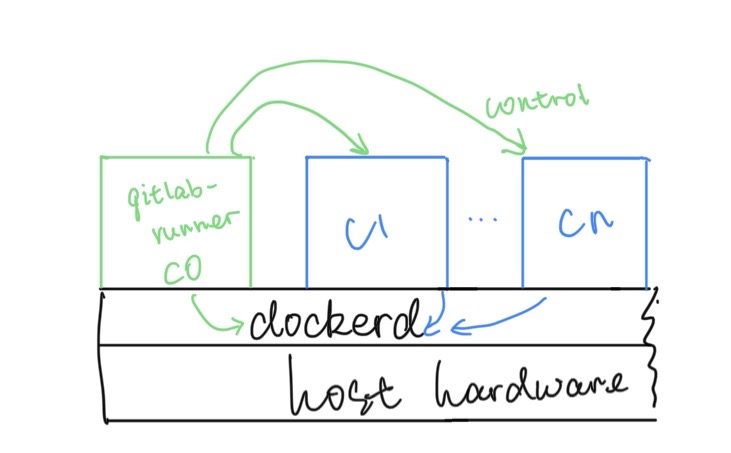 control
gitlab-
runner
C0
C1
...
Cn
dockerd
host hardware